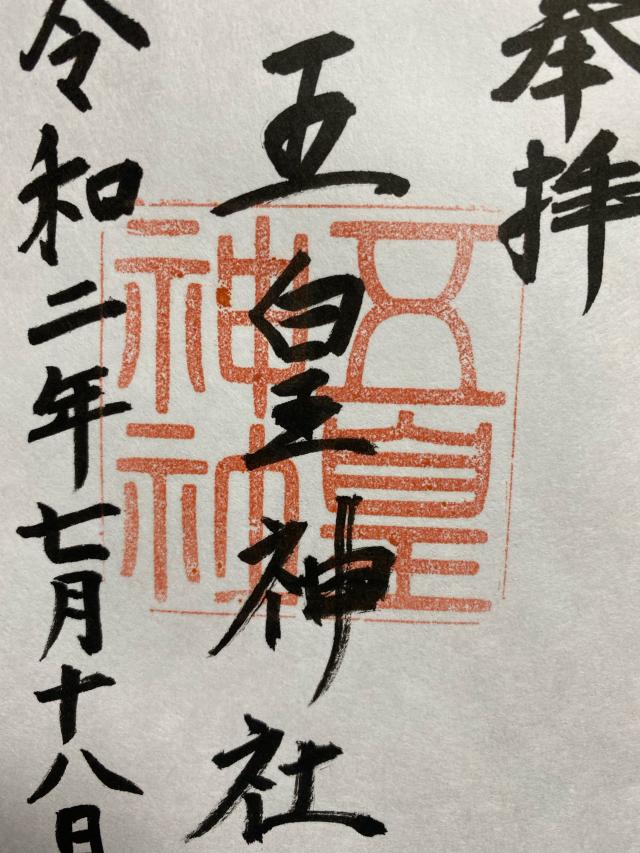 奉拝
五皇神社
五皇
神社
令和二年七月十八日